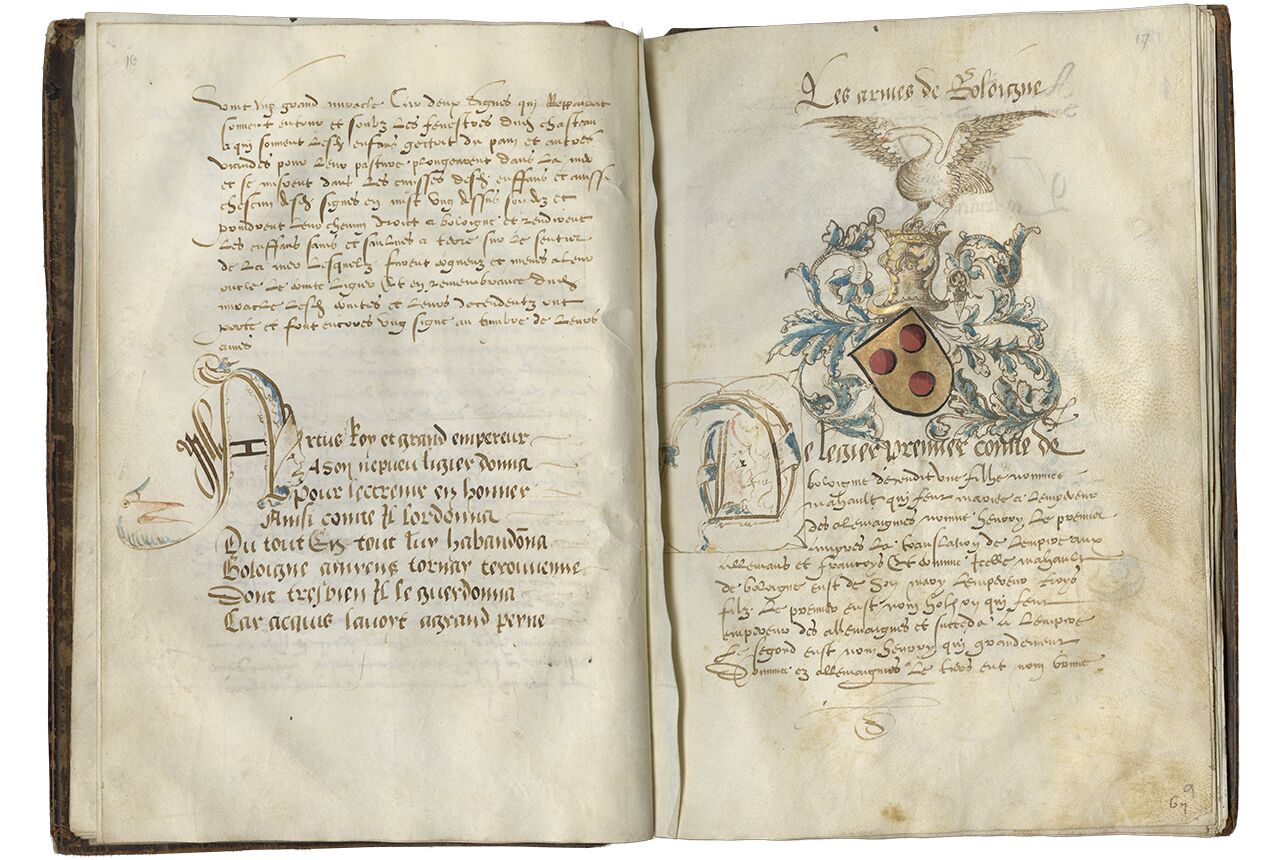 16
vint ung grand miracle Car deux signes qui
souvent entour et soubz les fenestres dud chasteau
a qui souvent lesd enfans gettoit du pain et autres
viandes pour leur pasture plongearent dans la mer
et se misrent dans les desd enffans et aussi
chescun desd signes en mist ung dessus son doz et
prindrent leur chemin droict a boloigne et rendirent
les enffans sains et saulves a terre sur le sentier
de la mer lesquelz furent cogneuz et menes a leur
oncle le comte Ligier Et en remembrance dud
miracle lesd comtes et leurs decendentz ont
porte et font encores ung signe au timbre de leurs
armes
Artus Roy et grand empereur
A son nepveu ligier donna
Pour laccreme en honner
Ainsi comte Il lordonna
Du tout En tout luy habandona
Boloigne amyens tornay terouvenne
Dont tresbien Il le guerdonna
Car acquis lavoyt a grand peyne
17
Les armes de Boloigne
De legier premier comte de
boloigne decendit une filhe nommee
mahault qui feut mariee a lempereur
des allemaignes nomme henry le premier
inapres la translation de lempire aux
allemans et francoys Et comme Icelle mahault
de boloigne eust de son mary lempereur troys
filz Le premier eust nom hothon qui feut
empereur des allemaignes et succeda a lempire
Le segond eust nom henry qui grandement
domina en allemaignes Le tiers eut nom
9
67